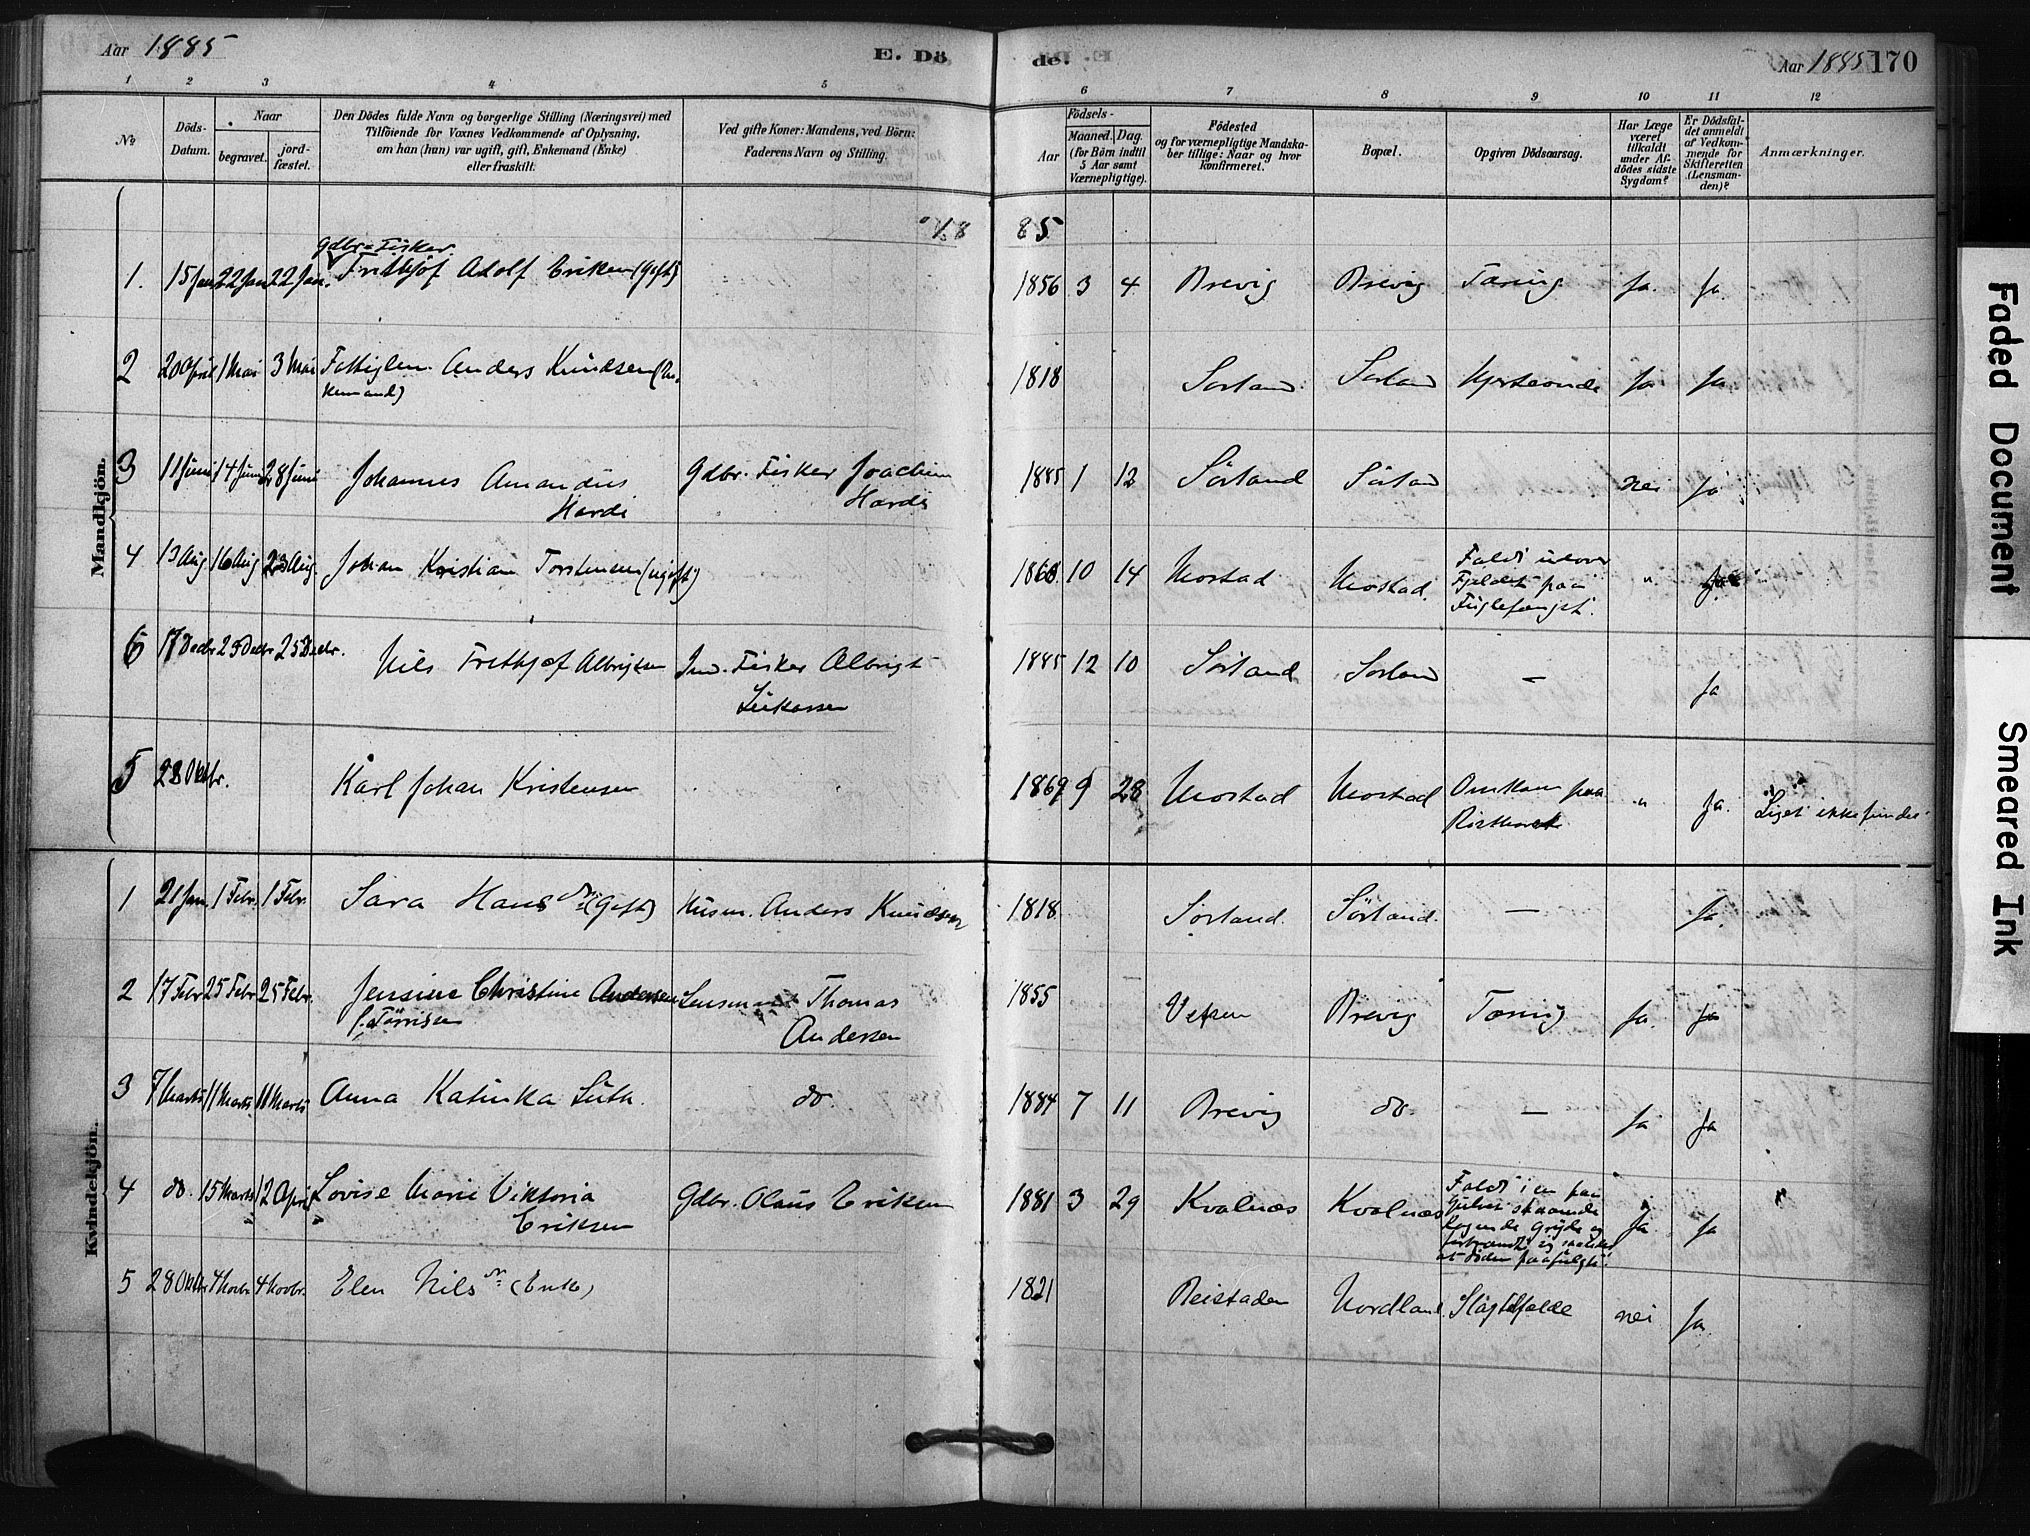 Aar 1885 E. Dö de. Aar 1885 170
1 2 3 4 5 6 7 8 9 10 11 12
No. Döds-Datum. Naar begravet. jord-fæstet.
Den Dödes fulde Navn og borgerlige Stilling (Næringsvei) med
Tilföiende for Voxnes Vedkommende af Oplysning,
om han (hun) var ugift, gift, Enkemand (Enke)
eller fraskilt.
Ved gifte Koner: Mandens, ved Börn:
Faderens Navn og Stilling.
Födsels-
Aar Maaned. Dag.
(for Börn indtil
5 Aar samt
Værnepligtige).
Födested
og for værnepligtige Mandska-
ber tillige: Naar og hvor
konfirmeret.
Bopæl.
Opgiven Dödsaarsag.
Har Læge
været
tilkaldt
under Af-
dödes sidste
Sygdom?
Er Dödsfal-
det anmeldt
af Vedkom-
mende for
Skifteretten
(Lensman-
den)?
Anmærkninger.
Mandkjön.
18 85
Gdbr. Fisker
1. 15 Jan 22 Jan 22 Jan. Frithjof Adolf Eriksen (gift) 1856 3 4 Brevig Brevig Tæring Ja. Ja.
2 20 April 1 Mai 3 Mai Fattiglem Anders Knudsen (En- 1818 Sorland Sorland Hjerteonde Ja Ja.
kemand)
3 11 Juni 14 Juni 28 Juni Johannes Amandus Gdbr. Fisker Joachim 1885 1 12 Sörland Sörland nei Ja
Hardi Hardi
4 13 Aug 16 Aug 23 Aug. Johan Kristian Torstensen (ugift) 1868 10 14 Mostad Mostad. Faldt udover " Ja
Fjeldet paa
Fuglefangst.
6 17 Decbr 25 Decbr 25 Decbr. Nils Frethjof Albrigtsen Ind. Fisker Albrigt 1885 12 10 Sörland Sorland — Ja
Lukassen
5 28 Oktbr. Karl Johan Kristensen 1869 9 28 Mostad Mostad Omkom paa " Ja. Liget ikke fundet
Rosthavet
Kvindekjön.
1 21 Jan. 1 Febr. 1 Febr. Sara Hansdr (gift) Husm. Anders Knudsen 1818 Sorland. Sörland. — Ja.
2 17 Febr 25 Febr 25 Febr. Jensine Christine Andersen Lensmand Thomas 1855 Vefsen Brevig Tæring Ja. Ja
f. Törrisen Andersen
3 7 Marts 11 Marts 11 Marts Anna Katinka Luth do 1884 7 11 Brevig do — Ja Ja
4 do. 15 Marts 12 April Lovise Marie Viktoria Gdbr. Olaus Eriksen 1881 3 29 Kvalnæs Kvalnæs Faldt i en paa Ja Ja
Eriksen
Gulvet staaende
kogende Gryde og
forbrændte sig saaledes
at Döden paafulgte.
5 28 Oktbr 4 Novbr 4 Novbr. Elen Nilsdr (Enke) 1821 Reistaden Nordland Slagtilfælde nei Ja
Faded Document
Smeared Ink